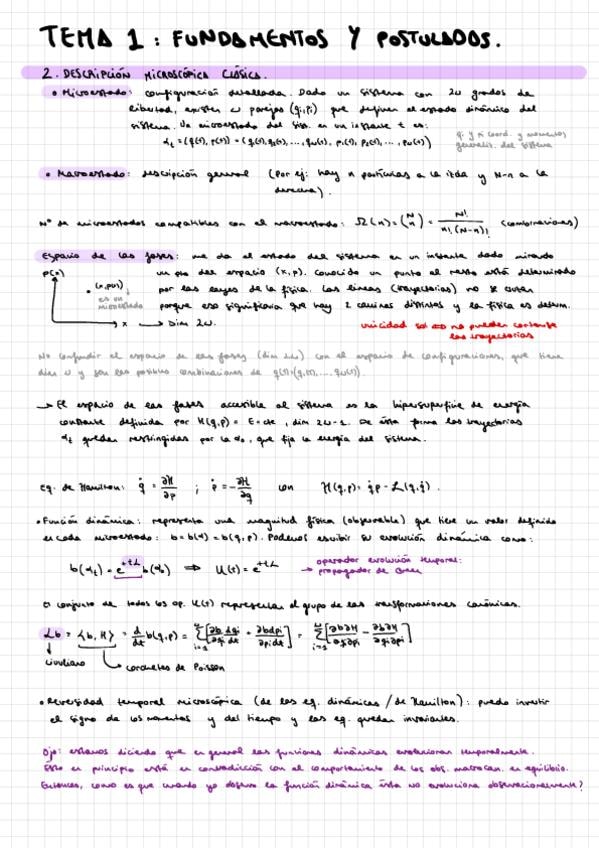 TEMA 1: FUNDAMENTOS Y POSTULADOS.
2. DESCRIPCIÓN MICROSCÓPICA CLÁSICA.
• Microestado: configuración detallada. Dado un sistema con 2ω grados de
libertad, existen ω parejas (qi, pi) que definen el estado dinámico del
sistema. Un microestado del sist. en un instante t es:
αt = (q(t), p(t)) = (q1(t), q2(t), ..., qω(t), p1(t), p2(t), ..., pω(t))
qi y pi coord. y momentos
generaliz. del sistema
• Macroestado: descripción general (Por ej: hay n partículas a la izda y N-n a la
derecha).
Nº de microestados compatibles con el macroestado: Ω(n) = (N n) = N! / n!(N-n)! (combinaciones)
Espacio de las fases: me da el estado del sistema en un instante dado mirando
un pto del espacio (x, p). Conocido un punto el resto está determinado
por las leyes de la física. Las líneas (trayectorias) no se cruzan
porque eso significaría que hay 2 caminos distintos y la física es determ.
p(x)
(x, p(x))
es un
microestado
x → Dim 2ω.
unicidad sol ⇔ no pueden cortarse
las trayectorias
No confundir el espacio de las fases (dim 2ω) con el espacio de configuraciones, que tiene
dim ω y son las posibles combinaciones de q(t) = (q1(t), ..., qω(t)).
→ El espacio de las fases accesible al sistema es la hipersuperficie de energía
constante definida por H(q,p) = E = cte, dim 2ω-1. De esta forma las trayectorias
αt quedan restringidas por la α0, que fija la energía del sistema.
Eq. de Hamilton: q̇ = ∂H/∂p ; ṗ = -∂H/∂q con H(q,p) = q̇p - L(q,q̇).
• Función dinámica: representa una magnitud física (observable) que tiene un valor definido
en cada microestado: b = b(α) = b(q,p). Podemos escribir su evolución dinámica como:
b(αt) = e^{+tL} b(α0) ⇒ U(t) = e^{+tL}
operador evolución temporal:
propagador de Green
El conjunto de todos los op. U(t) representan el grupo de las transformaciones canónicas.
Lb = {b, H} = d/dt b(q,p) = Σ_{i=1}^{ω} [∂b/∂qi dqi/dt + ∂b/∂pi dpi/dt] = Σ_{i=1}^{ω} [∂b/∂qi ∂H/∂pi - ∂b/∂pi ∂H/∂qi]
Liouviliano
corchetes de Poisson
• Reversidad temporal microscópica (de las eq. dinámicas / de Hamilton): puedo invertir
el signo de los momentos y del tiempo y las eq. quedan invariantes.
Ojo: estamos diciendo que en general las funciones dinámicas evolucionan temporalmente.
Esto en principio está en contradicción con el comportamiento de los obs. macroscóp. en equilibrio.
Entonces, como es que cuando yo observo la función dinámica ésta no evoluciona observacionalmente?